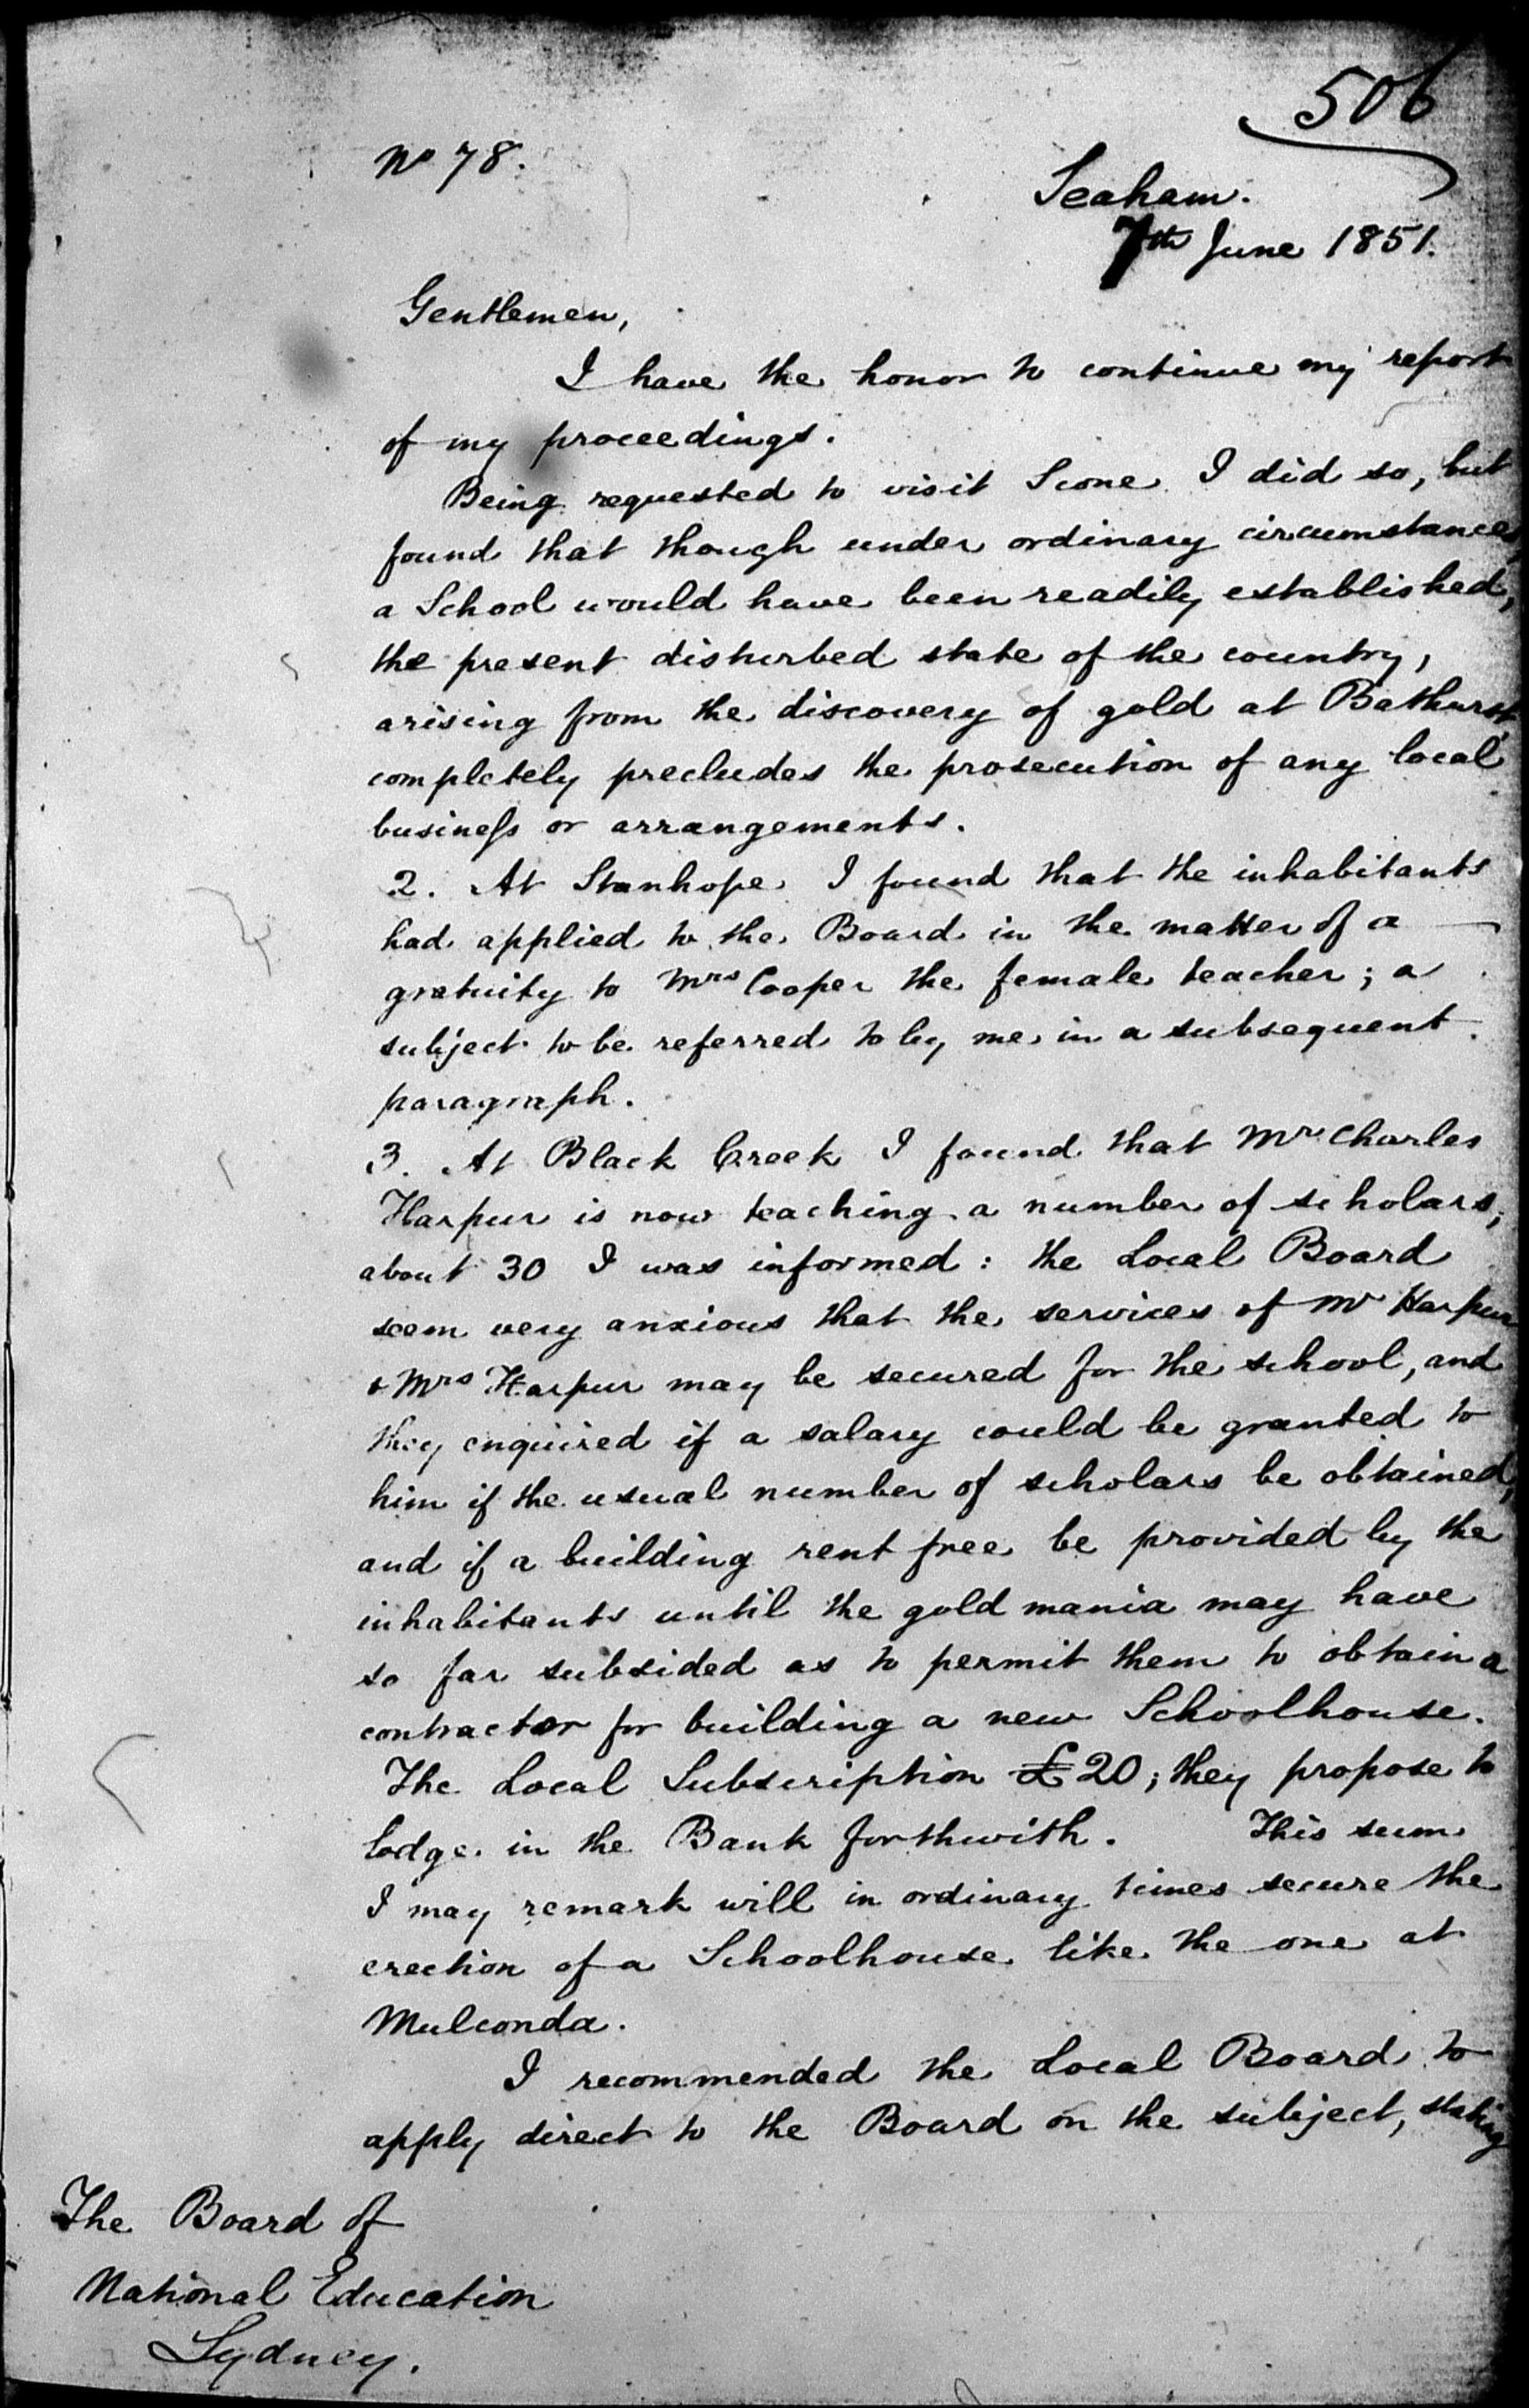 506
No 78.
Seaham.
7th June 1851.
Gentlemen,
I have the honor to continue my report
of my proceedings.
Being requested to visit Scone I did so, but
found that though under ordinary circumstances,
a School would have been readily established,
the present disturbed state of the country,
arising from the discovery of gold at Bathurst,
completely precludes the prosecution of any local
business or arrangements.
2. At Stanhope I found that the inhabitants
had applied to the Board in the matter of a
gratuity to Mrs Cooper the female teacher; a
subject to be referred to by me in a subsequent
paragraph.
3. At Black Creek I found that Mr Charles
Harpur is now teaching a number of scholars,
about 30 I was informed: the Local Board
seem very anxious that the services of Mr Harpur
& Mrs Harpur may be secured for the school, and
they enquired if a salary could be granted to
him if the usual number of scholars be obtained,
and if a building rent free be provided by the
inhabitants until the gold mania may have
so far subsided as to permit them to obtain a
contractor for building a new Schoolhouse.
The Local Subscription £20; they propose to
lodge in the Bank forthwith. This sum
I may remark will in ordinary times secure the
erection of a Schoolhouse like the one at
Mulconda.
I recommended the Local Board to
apply direct to the Board on the subject, stating
The Board of
National Education
Sydney.